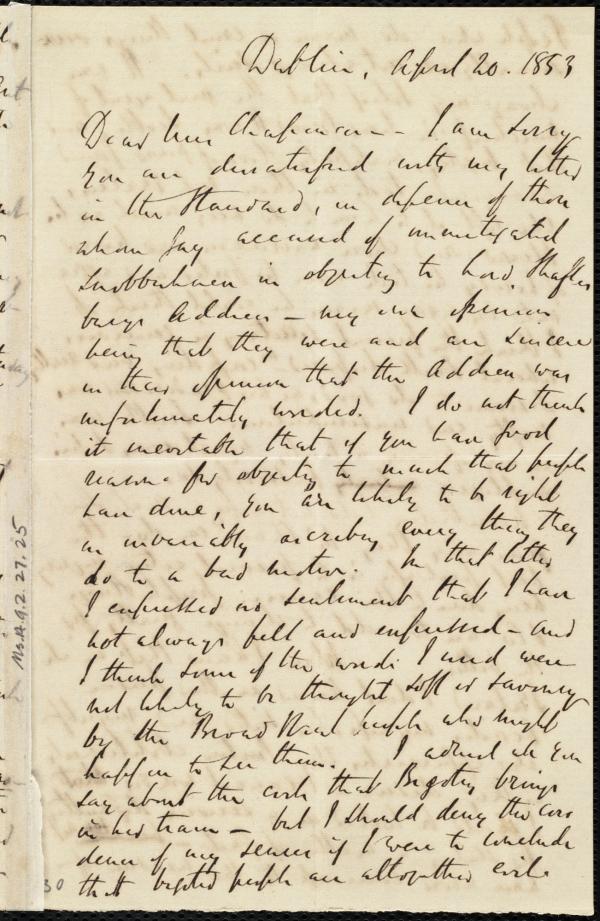 Dublin, April 20. 1853
Dear Mrs Chapman - I am sorry
you are dissatisfied with my letter
in the Standard, in defence of those
whom Gay accused of unmitigated
Snobbishness in objecting to Lord Shaftes
bury's Address - my own opinion
being that they were and are sincere
in their opinion that the Address was
unfortunately worded. I do not think
it inevitable that if you have good
reasons for objecting to much that people
have done, you are likely to be right
in invariably ascribing every thing they
do to a bad motive. In that letter
I expressed no sentiment that I have
not always felt and expressed - and
I think some of the words I used were
not likely to be thought soft or savoury
by the Broad Street people who might
happen to see them. I admit all you
say about the evils that Bigotry brings
in her train - but I should deny the evi
dence of my senses if I were to conclude
that bigoted people are altogether evil.
Ms.A.9.2.27.25
30